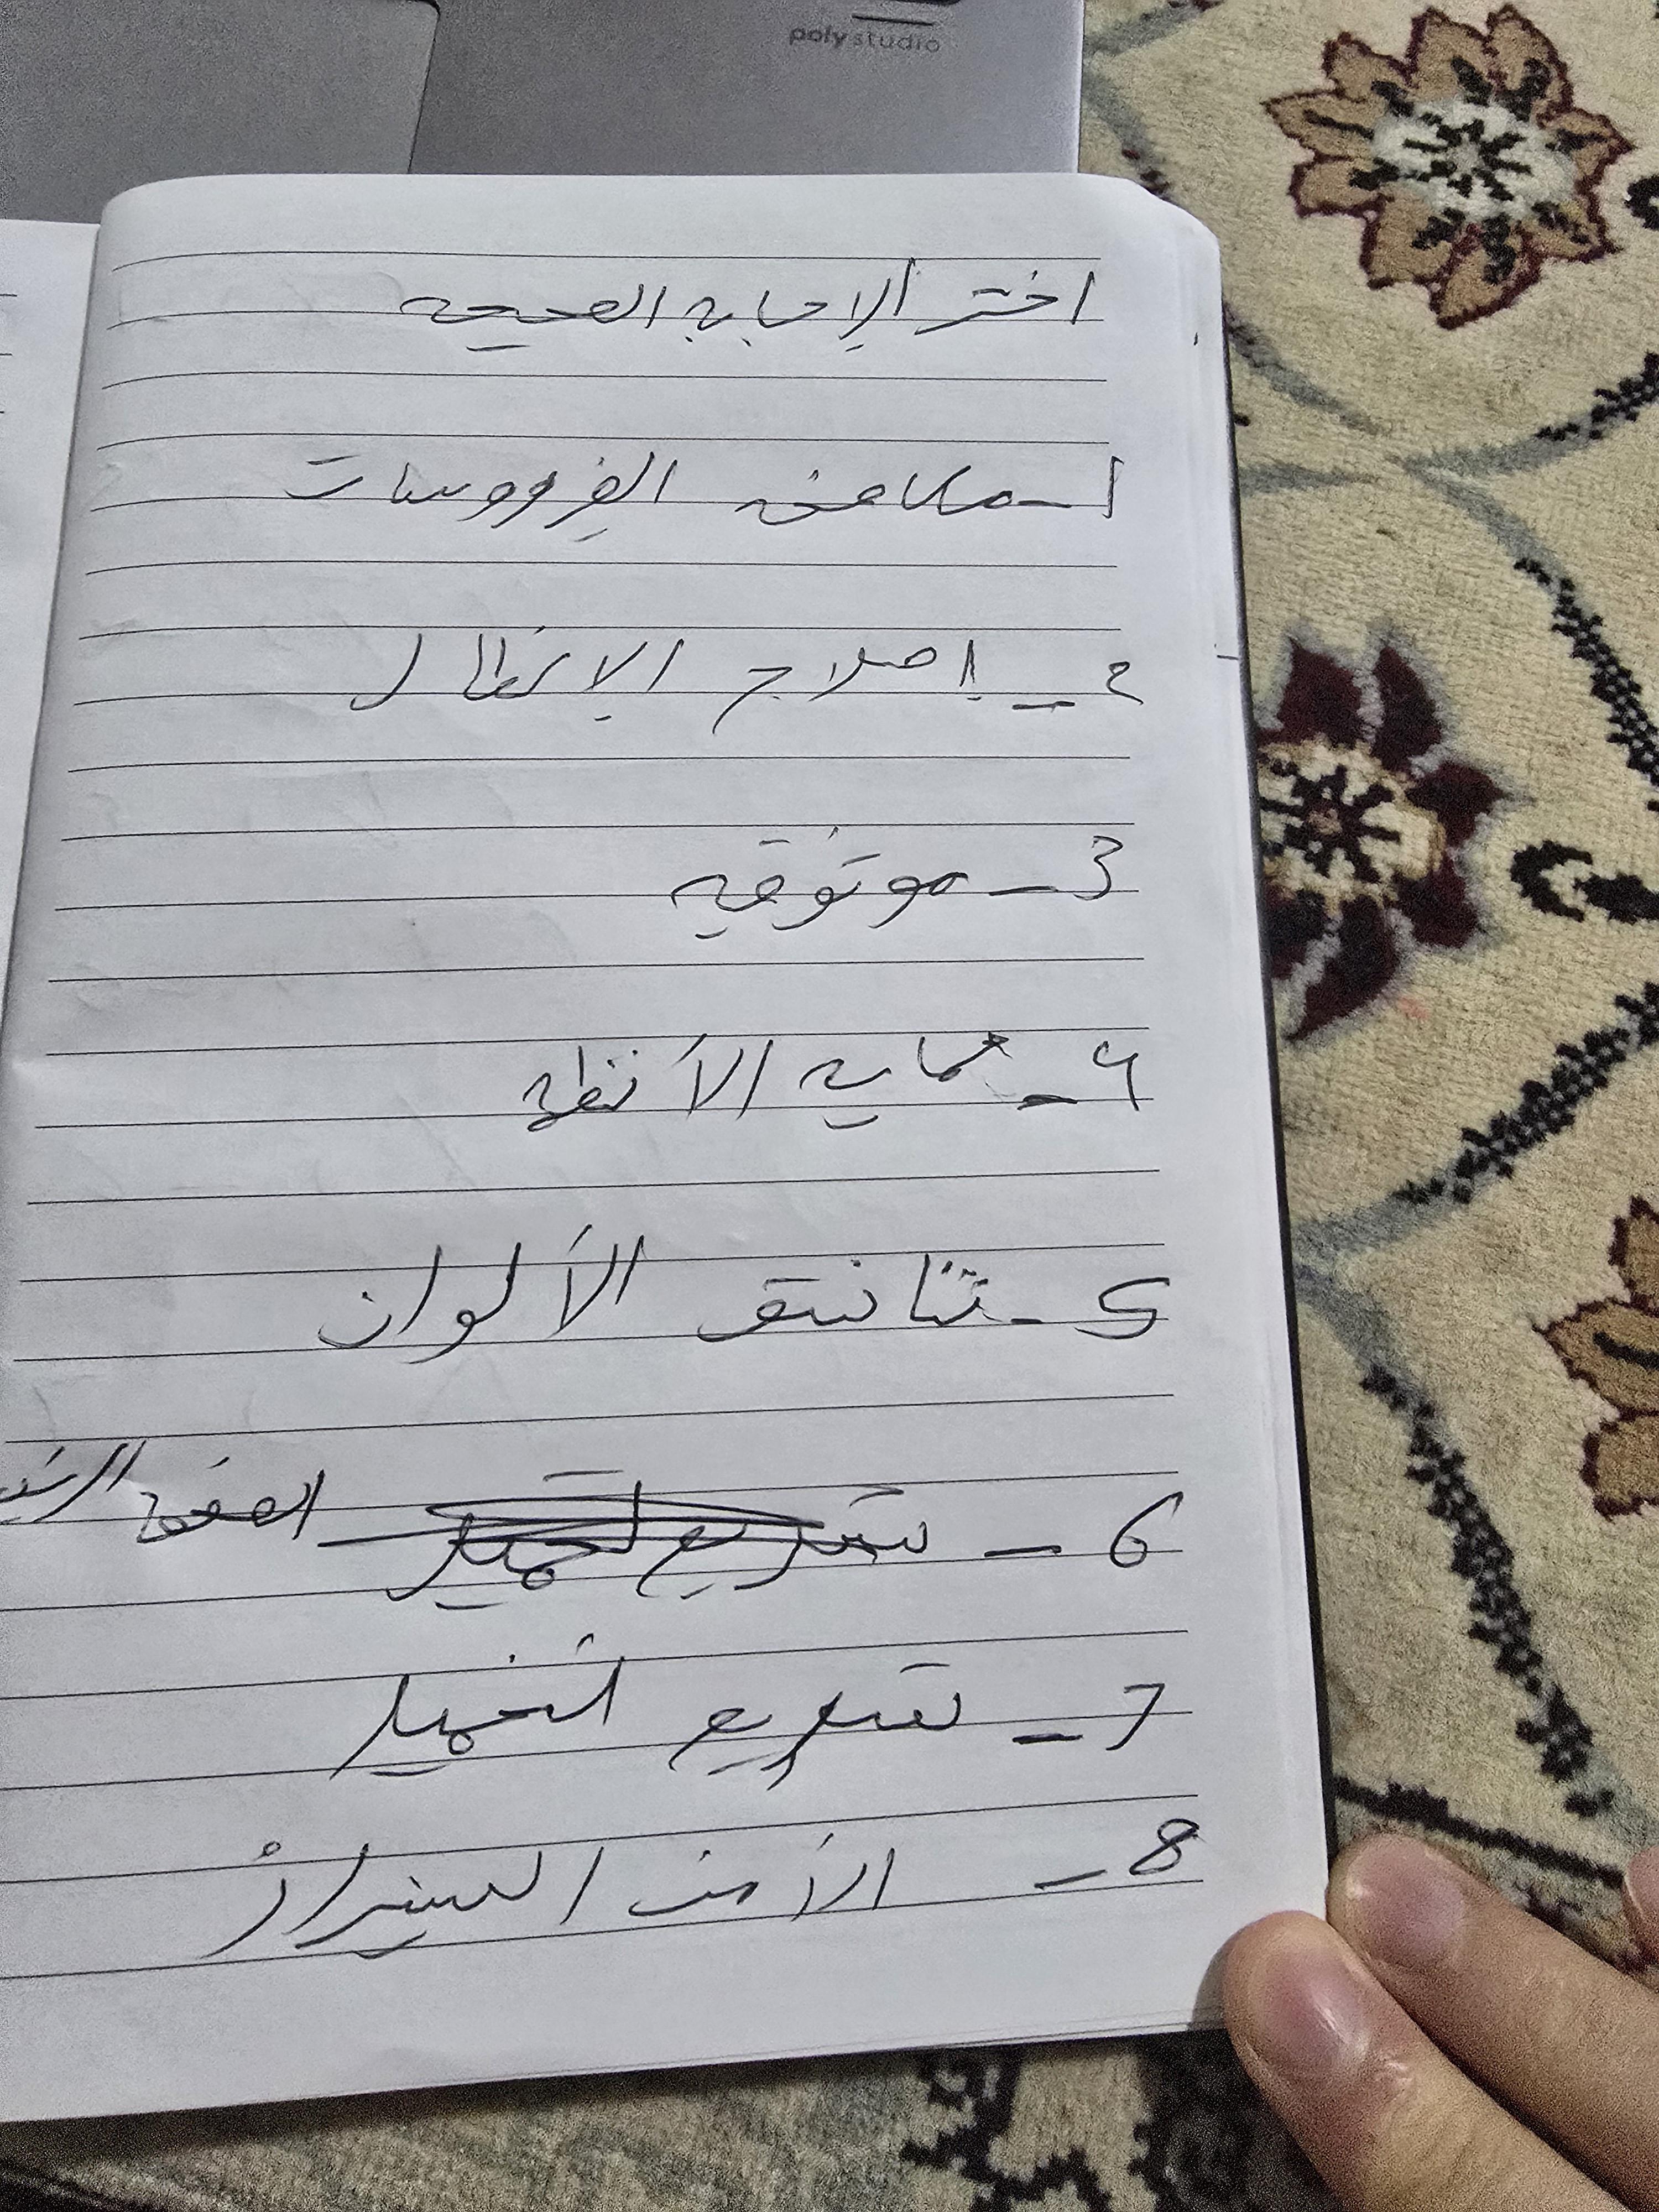 poly studio
اختر الإجابة الصحيحه
1- مكافحه الفيروسات
2- إصلاح الاعطال
3- موثوقيه
4- حماية الأنظمة
5- تناسق الألوان
6- الصفحة
7- تسريع التحميل
8- الأمن السيبراني